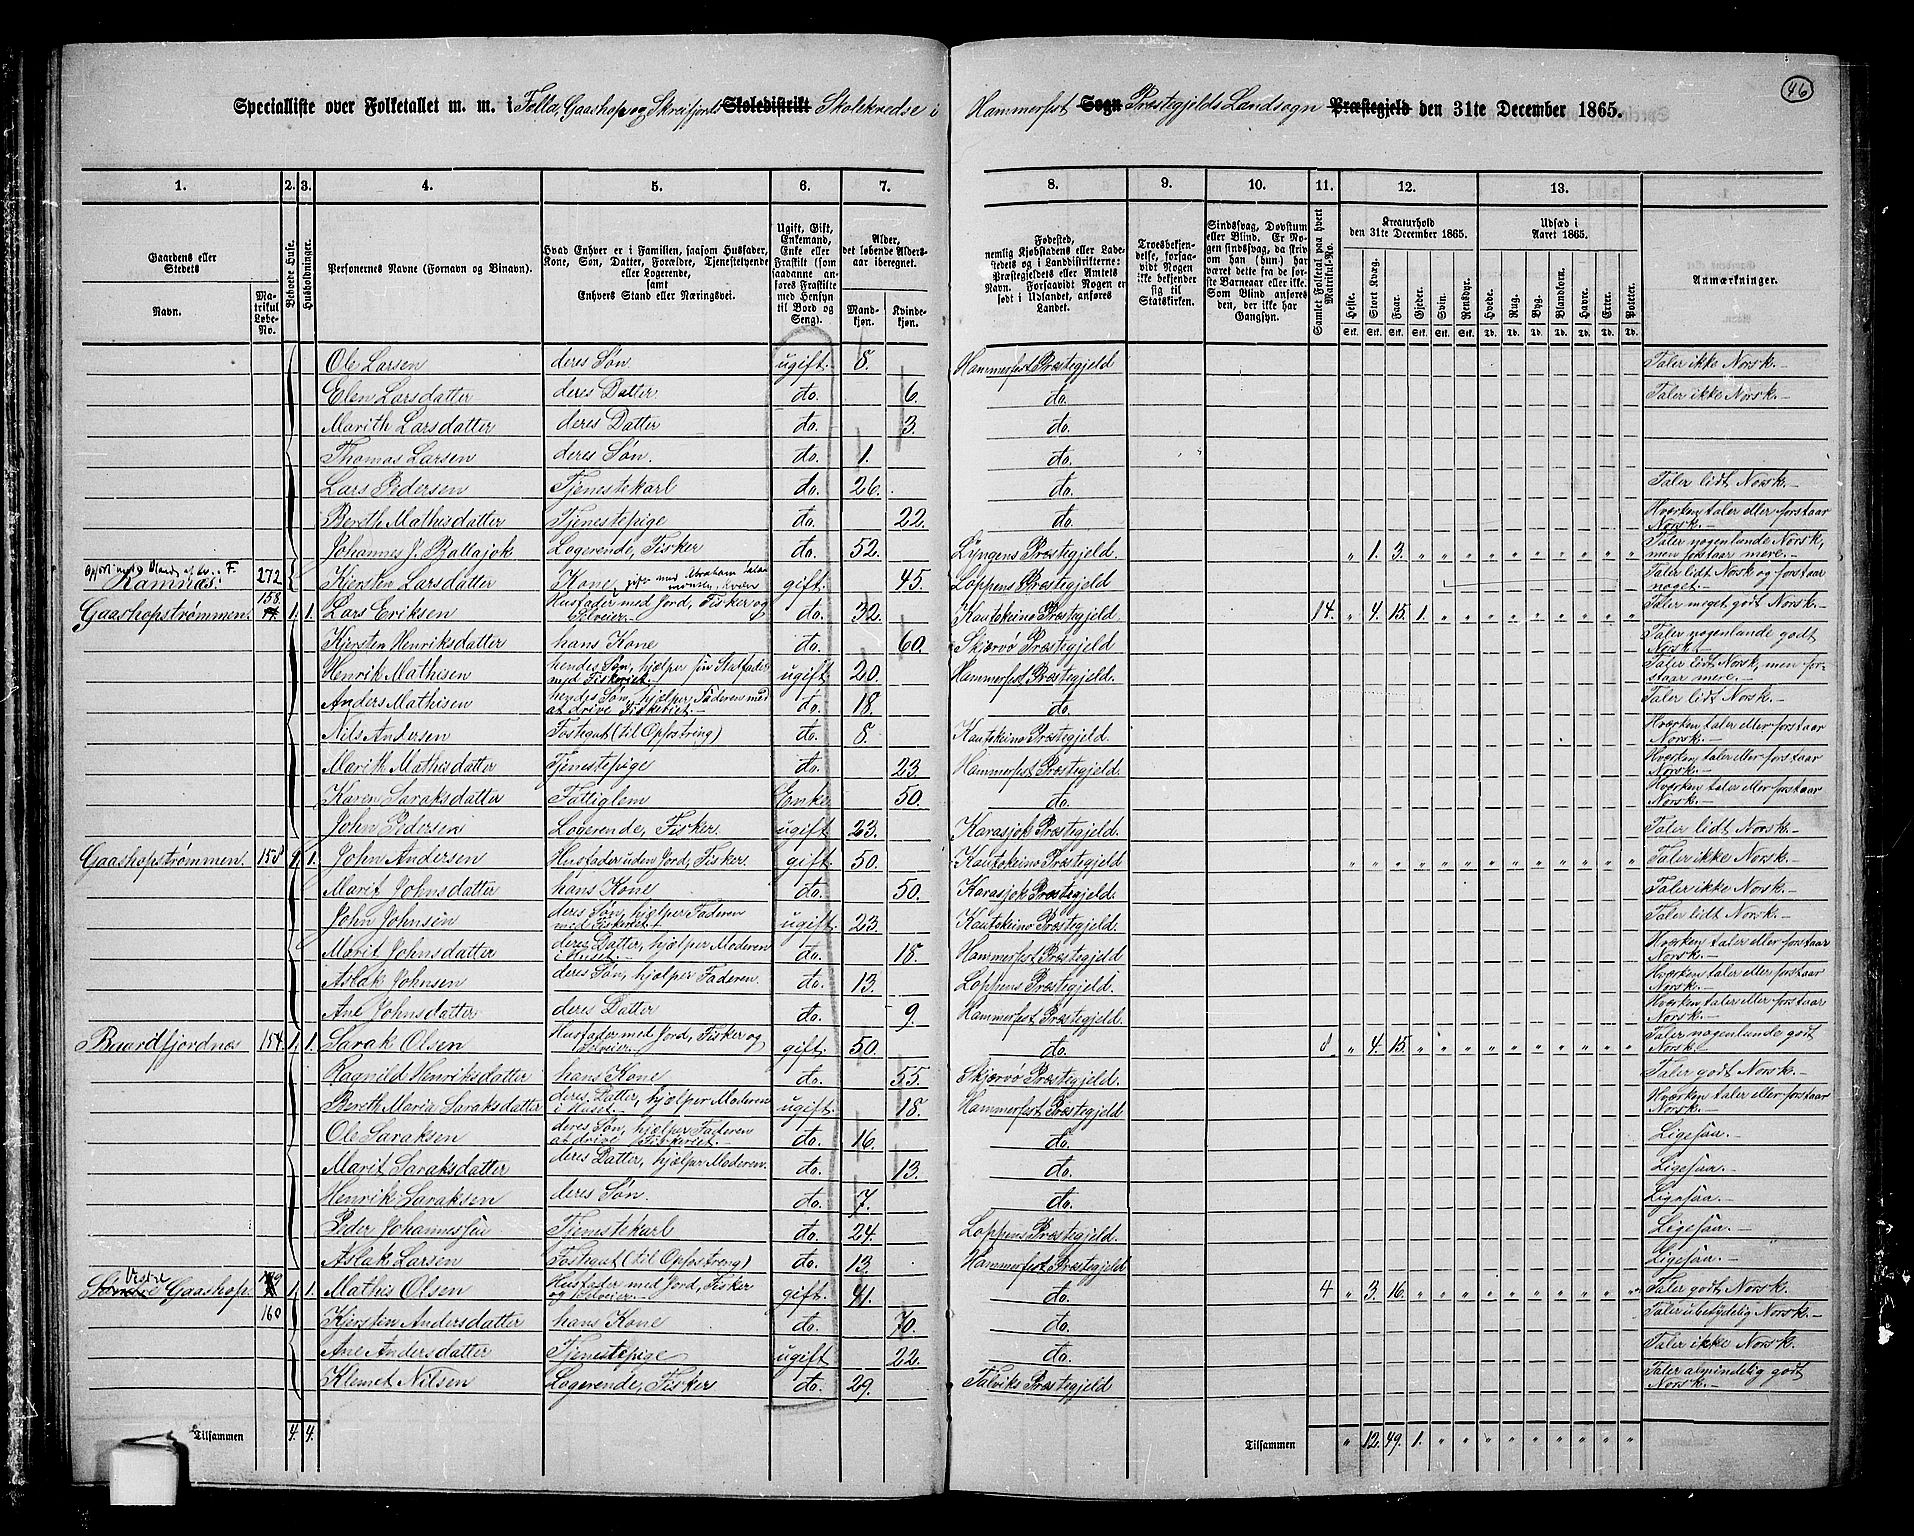 46
Specialliste over Folketallet m. m. i Fella, Gaashop og Skreifjords Skoledistrikt Skolekredse i Hammerfest Sogn Præstegjelds Landsogn Præstegjeld den 31te December 1865.
1. 2. 3. 4. 5. 6. 7. 8. 9. 10. 11. 12. 13.
Gaardens eller Stedets Navn. Matrikul Løbe-No. Beboede Huse. Husholdninger. Personernes Navne (Fornavn og Binavn). Hvad Enhver er i Familien, saasom Husfader, Kone, Søn, Datter, Forældre, Tjenestetyende eller Logerende, samt Enhvers Stand eller Næringsvei. Ugift, Gift, Enkemand, Enke eller Fraskilt (som saadanne anføres Fraskilte med Hensyn til Bord og Seng). Alder, det løbende Aldersaar iberegnet. Mandkjøn. Kvindekjøn.
Fødested, nemlig Kjøbstadens eller Ladestedets og i Landdistrikterne: Præstegjeldets eller Amtets Navn. Forsaavidt Nogen er født i Udlandet, anføres Landet. Troesbekjendelse, forsaavidt Nogen ikke bekjender sig til Statskirken. Sindssvag, Døvstum eller Blind. Er Nogen sindssvag, da skrives om han (hun) har været dette fra de første Barneaar eller ikke. Som Blind anføres den, der ikke har Gangsyn. Samlet Folketal paa hvert Matrikul-No. Kreaturhold den 31te December 1865. Heste. Stort Kvæg. Faar. Gjeder. Svin. Rensdyr. Udsæd i Aaret 1865. Hvede. Rug. Byg. Blandkorn. Havre. Erter. Poteter. Anmærkninger.
Ole Larsen deres Søn ugift. 8. Hammerfest Præstegjeld Taler ikke Norsk.
Elen Larsdatter deres Datter do. 6. do. Taler ikke Norsk.
Marith Larsdatter deres Datter do. 3. do.
Thomas Larsen deres Søn. do. 1. do.
Lars Pedersen Tjenestekarl do. 26. do. Taler lidt Norsk.
Berith Mathisdatter Tjenestepige do. 22. do. Hverken taler eller forstaar Norsk.
Johannes J. Ballajok Logerende, Fisker do. 52. Lyngens Præstegjeld " 1. 3. " " " " " " " " " " Taler nogenlunde Norsk, men forstaar mere.
Ramnæs. 272 Kirsten Larsdatter Kone, gift 45. Loppens Præstegjeld Taler lidt Norsk og forstaar noget.
Gaashopstrømmen. 158 1. 1. Lars Eriksen Husfader med Jord, Fisker og Selveier. do. 32. Kautokeino Præstegjeld 14. " 4. 15. 1. " " " " " " " " " Taler meget godt Norsk.
Kjersten Henriksdatter hans Kone do. 60. Skjærvø Præstegjeld Taler nogenlunde godt Norsk.
Henrik Mathisen hendes Søn, hjælper sin Stalfader med Fiskeriet. ugift. 20. Hammerfest Præstegjeld. Taler lidt Norsk, men forstaar mere.
Anders Mathisen hendes Søn, hjælper Faderen med at drive Fiskeriet. do. 18. do. Taler lidt Norsk.
Nils Andersen Fostraut (til Opfostring) do. 8. Kautokeino Præstegjeld. Hverken taler eller forstaar Norsk.
Marith Mathisdatter Tjenestepige do. 23. Hammerfest Præstegjeld. Hverken taler eller forstaar Norsk.
Karen Saraksdatter Fattiglem Enke 50. do. Hverken taler eller forstaar Norsk.
John Pedersen Logerende, Fisker. ugift 23. Karasjok Præstegjeld. Taler lidt Norsk.
Gaashopstrømmen. 158 1. 1. John Andersen Husfader uden Jord, Fisker. gift. 50. Kautokeino Præstegjeld " " " " " " " " " " " " " Taler ikke Norsk.
Marit Johnsdatter hans Kone do. 50. Karasjok Præstegjeld. Taler ikke Norsk.
John Johnsen deres Søn, hjælper Faderen med Fiskeriet. ugift. 23. Kautokeino Præstegjeld. Taler lidt Norsk.
Marit Johnsdatter deres Datter, hjælper Moderen i Huset. do. 18. Hammerfest Præstegjeld Hverken taler eller forstaar Norsk.
Aslak Johnsen deres Søn, hjælper Faderen. do. 13. Loppens Præstegjeld. Hverken taler eller forstaar Norsk.
Ane Johnsdatter deres Datter do. 9. Hammerfest Præstegjeld. Hverken taler eller forstaar Norsk.
Buardfjordnæs 154. 1. 1. Sarak Olsen Husfader med Jord, Fisker og Selveier. gift. 50. do. 8. " 4. 15. " " " " " " " " " " Taler nogenlunde godt Norsk.
Ragnilde Henriksdatter hans Kone do. 55. Skjærvø Præstegjeld. Taler godt Norsk.
Bereth Maria Saraksdatter deres Datter, hjælper Moderen i Huset. ugift. 18. Hammerfest Præstegjeld Hverken taler eller forstaar Norsk.
Ole Saraksen deres Søn, hjælper Faderen at drive Fiskeriet. do. 16. do. Ligesaa.
Marit Saraksdatter deres Datter, hjælper Moderen. do. 13. do. Ligesaa.
Henrik Saraksen deres Søn. do. 7. do. Ligesaa.
Peder Johannessen Tjenestekarl do. 24. Loppens Præstegjeld. Ligesaa.
Aslak Larsen Fostraut (til Opfostring) do. 13. Hammerfest Præstegjeld Ligesaa.
Vestre Søndre Gaashop. 160 1. 1. Mathis Olsen Husfader med Jord, Fisker og Selveier. gift. 41. do. 4 " 3. 16. " " " " " " " " " " Taler godt Norsk.
Kjersten Andersdatter hans Kone do. 70. do. Taler ubetydelig Norsk.
Ane Andersdatter Tjenestepige ugift 22. do. Taler ikke Norsk.
Klemet Nilsen Logerende, Fisker do. 29. Talviks Præstegjeld Taler almindelig godt Norsk.
Tilsammen 4. 4. Tilsammen " 12. 49. 1. " " " " " " " " "